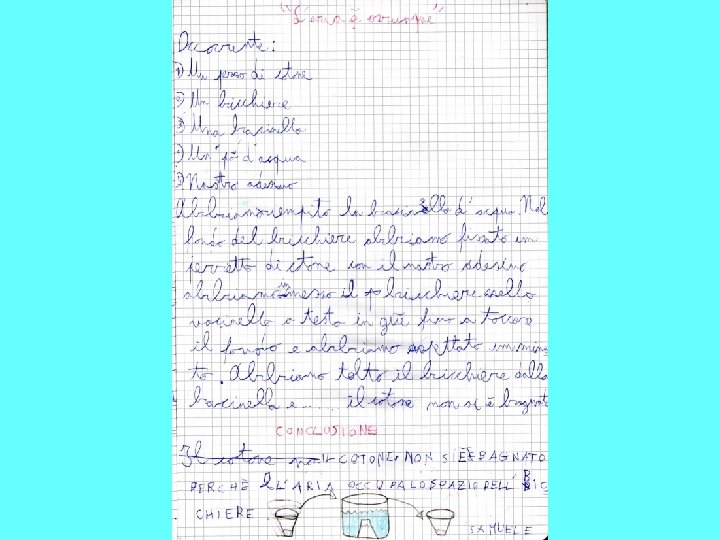 "L'aria è ovunque"
Occorrente:
1) Un pezzo di cotone
2) Un bicchiere
3) Una bacinella
4) Un "pò" d'acqua
5) Nastro adesivo
Abbiamo riempito la bacinella d'acqua. Nel
fondo del bicchiere abbiamo fissato un
pezzetto di cotone con il nastro adesivo
abbiamo messo il bicchiere nello
vacinello a testa in giù fino a toccare
il fondo e abbiamo aspettato un minu
to. Abbiamo tolto il bicchiere dalla
bacinella e .... il cotone non si è bagnato
CONCLUSIONE
Il cotone non IL COTONE NON SI È BAGNATO
PERCHÈ L'ARIA OCCUPA LO SPAZIO DELL' BIC
CHIERE
SAMUELE